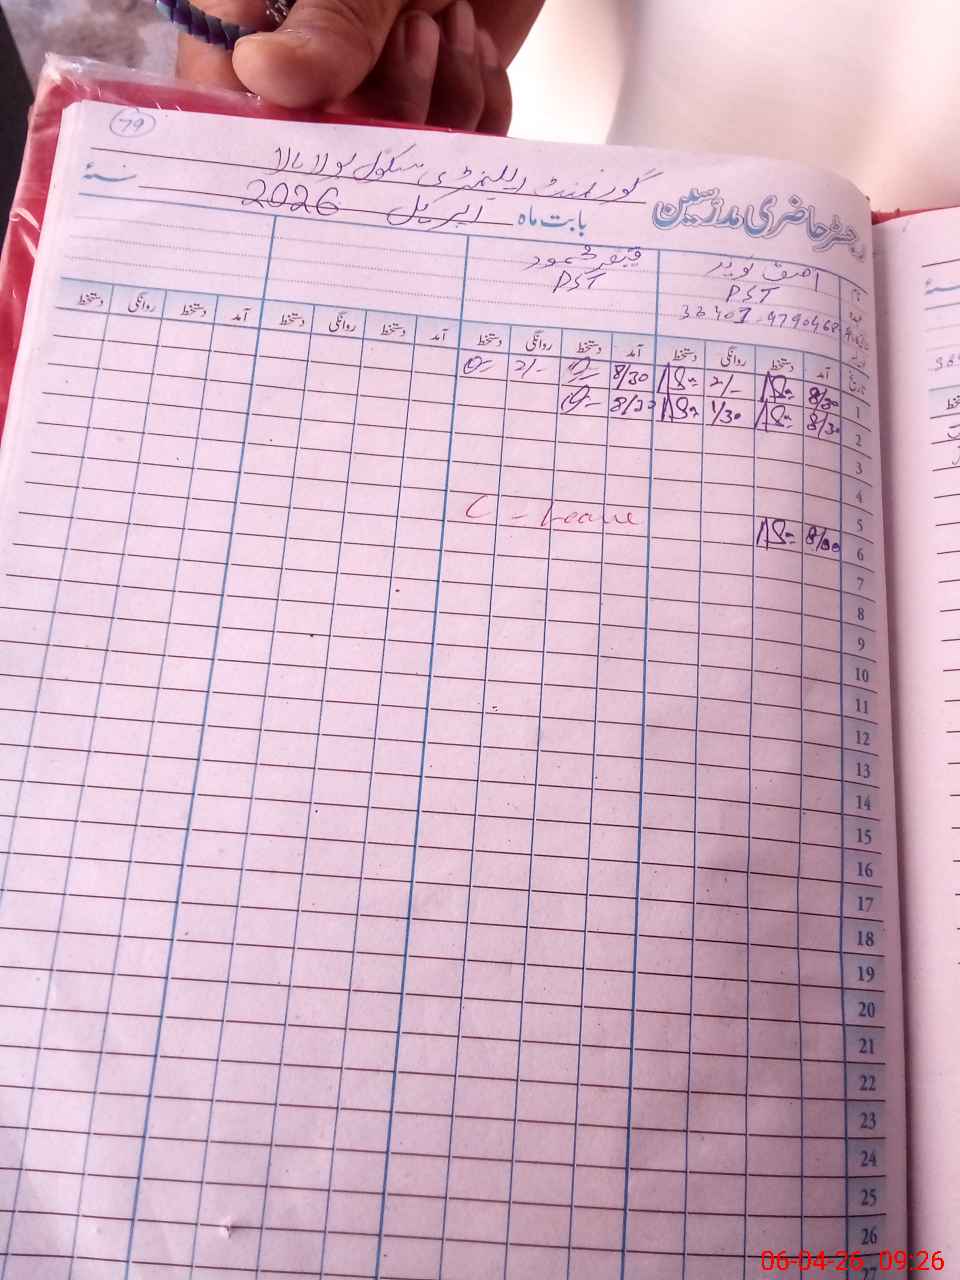 79
گورنمنٹ ایلیمنٹری سکول
رجسٹر حاضری مدرسین
بابت ماہ اپریل 2026 سنہ
آصف نوید
قیصر محمود
نام
PST
PST
عہدہ
تاریخ آمد دستخط روانگی دستخط آمد دستخط روانگی دستخط آمد دستخط روانگی دستخط آمد دستخط روانگی دستخط
1 8/30 2/- 8/30 2/-
2 8/30 1/30 8/30
3
4
5
C - Leave
6 8/00
7
8
9
10
11
12
13
14
15
16
17
18
19
20
21
22
23
24
25
26
27
06-04-26 09:26